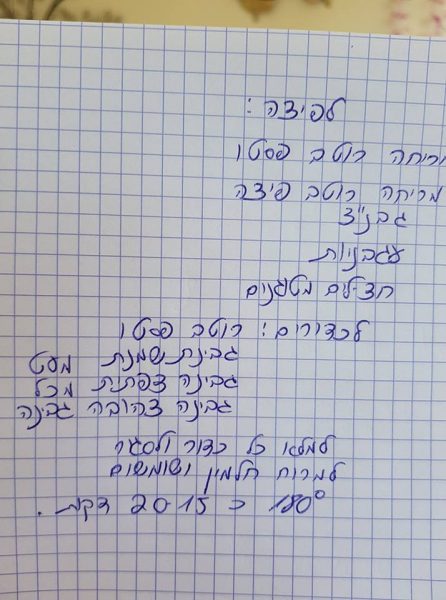 לפיצה:
מריחה רוטב פסטו
מריחה רוטב פיצה
גבנ"צ
עגבניות
חצילים מטוגנים
לכדורים: רוטב פסטו
גבינת שמנת מעט
גבינה צפתית מכל
גבינה צהובה גבינה
למלא כל כדור ולסגר
למרוח חלמון ושומשום
180° כ 15 20 דקות.